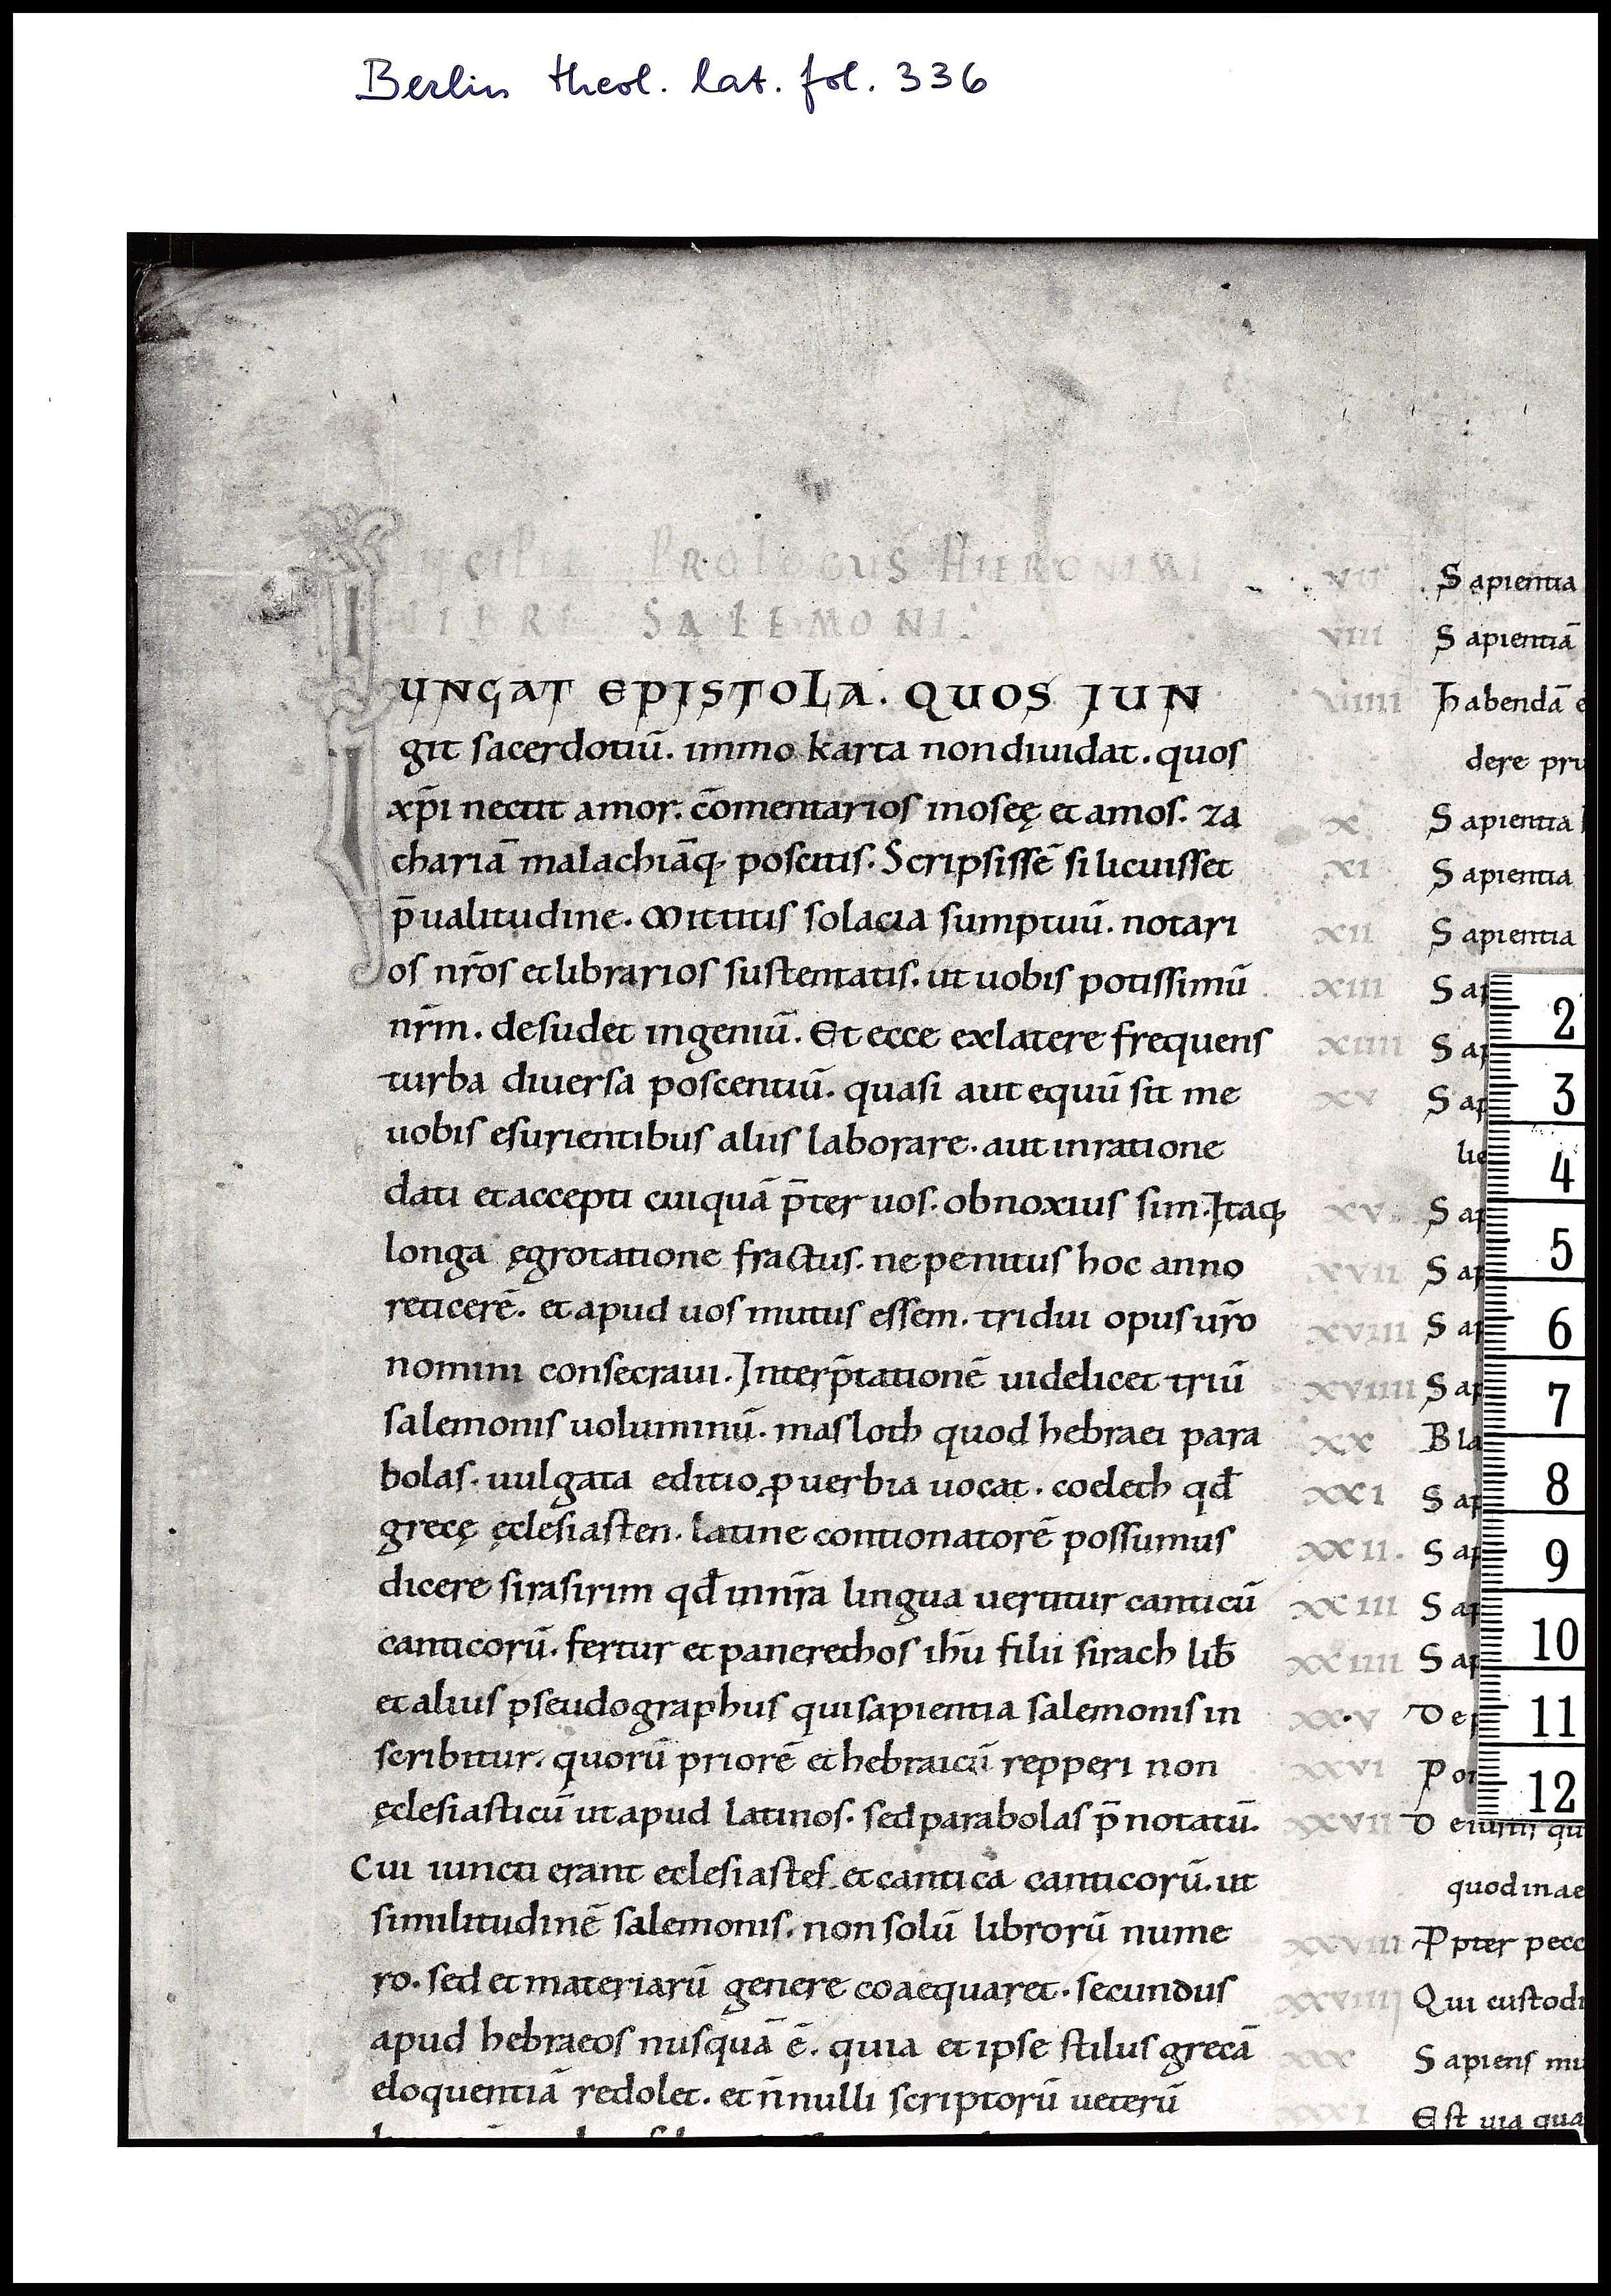 Berlin theol. lat. fol. 336
PROLOGUS HIERONIMI
LIBRI SALEMONI.
IUNGAT EPISTOLA. QUOS IUN
git sacerdotiū. immo karta non diuidat. quos
xp̄i nectit amor. c̄omentarios inoseę et amos. za
chariā malachiāq; poscitis. Scripsissē si licuisset
p̄ualitudine. Mittitis solacia sumptuū. notari
os nr̄os et librarios sustentatis. ut uobis potissimū
nr̄m. desudet ingeniū. Et ecce ex latere frequens
turba diuersa poscentiū. quasi aut equū sit me
uobis esurientibus aliis laborare. aut in ratione
dati et accepti cuiquā p̄ter uos. obnoxius sim. Itaq;
longa ęgrotatione fractus. ne penitus hoc anno
reticerē. et apud uos mutus essem. tridui opus ur̄o
nomini consecraui. Interp̄tationē uidelicet triū
salemonis uoluminū. masloth quod hebraei para
bolas. uulgata editio ꝓuerbia uocat. coeleth qd̄
grecę ęclesiasten. latine contionatorē possumus
dicere sirasirim qd̄ in nr̄a lingua uertitur canticū
canticorū. fertur et panerethos ihū filii sirach lib̄
et alius pseudographus qui sapientia salemonis in
scribitur. quorū priorē et hebraicū repperi non
ęclesiasticū ut apud latinos. sed parabolas p̄notatū.
Cui iuncti erant eclesiastes. et cantica canticorū. ut
similitudinē salemonis. non solū librorū nume
ro. sed et materiarū genere coaequaret. secundus
apud hebraeos nusquā ē. quia et ipse stilus grecā
eloquentiā redolet. et n̄nulli scriptorū ueterū
VII Sapientia
VIII Sapientiā
VIIII habendā e
dere pru
X Sapientia
XI Sapientia
XII Sapientia
XIII Sap
XIIII Sap
XV Sap
lie
XVI Sap
XVII Sap
XVIII Sap
XVIIII Sap
XX Bla
XXI Sap
XXII. Sap
XXIII Sap
XXIIII Sap
XXV De
XXVI Por
XXVII De
quod in ae
XXVIII Ppter pecc
XXVIIII Qui custodi
XXX Sapiens mu
XXXI Est uia qua
2
3
4
5
6
7
8
9
10
11
12